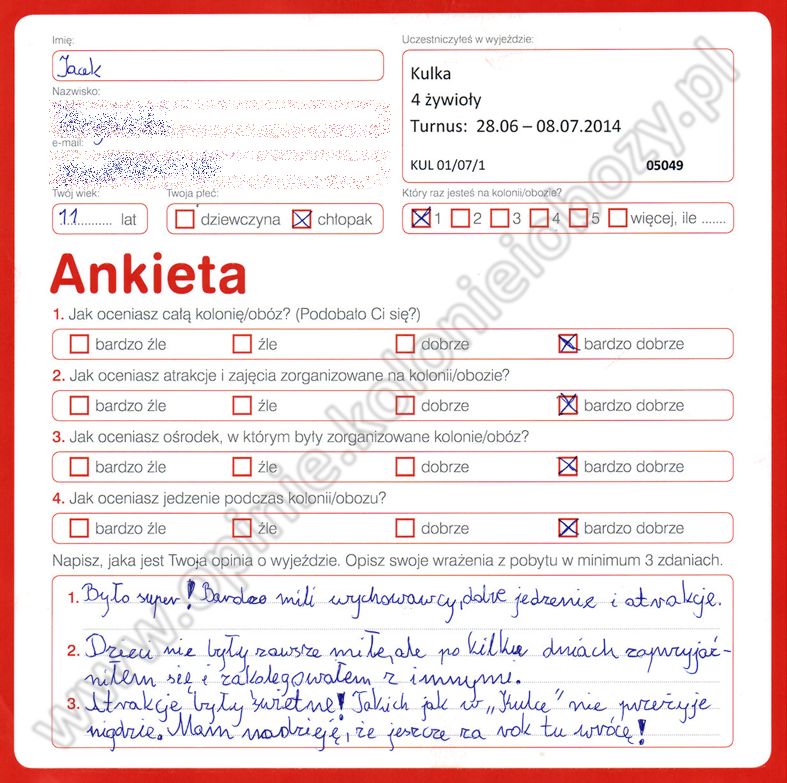 Imię:
Jacek
Nazwisko:
e-mail:
Twój wiek:
11 lat
Twoja płeć:
dziewczyna chłopak
Uczestniczyłeś w wyjeździe:
Kulka
4 żywioły
Turnus: 28.06 – 08.07.2014
KUL 01/07/1 05049
Który raz jesteś na kolonii/obozie?
1 2 3 4 5 więcej, ile .......
Ankieta
1. Jak oceniasz całą kolonię/obóz? (Podobało Ci się?)
bardzo źle źle dobrze bardzo dobrze
2. Jak oceniasz atrakcje i zajęcia zorganizowane na kolonii/obozie?
bardzo źle źle dobrze bardzo dobrze
3. Jak oceniasz ośrodek, w którym były zorganizowane kolonie/obóz?
bardzo źle źle dobrze bardzo dobrze
4. Jak oceniasz jedzenie podczas kolonii/obozu?
bardzo źle źle dobrze bardzo dobrze
Napisz, jaka jest Twoja opinia o wyjeździe. Opisz swoje wrażenia z pobytu w minimum 3 zdaniach.
1. Było super! Bardzo mili wychowawcy, dobre jedzenie i atrakcje.
2. Dzieci nie były zawsze miłe, ale po kilku dniach zaprzyjaź-
niłem się i zakolegowałem z innymi.
3. Atrakcje były świetne! Takich jak w „Kulce" nie przeżyje
nigdzie. Mam nadzieję, że jeszcze za rok tu wrócę!
www.opinie.kolonieiobozy.pl